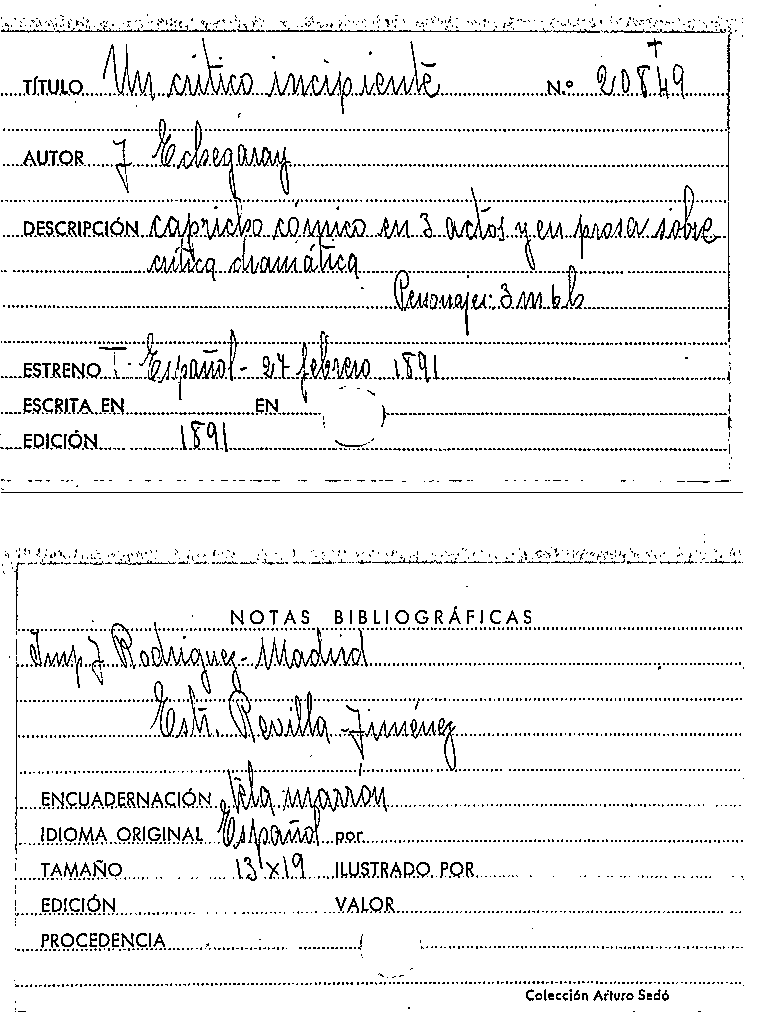 TÍTULO Un crítico incipiente N.º 20849
AUTOR J Echegaray
DESCRIPCIÓN capricho cómico en 3 actos y en prosa sobre
crítica dramática
Personajes: 3 m 6 h
ESTRENO T. Español - 27 febrero 1891
ESCRITA EN EN
EDICIÓN 1891
NOTAS BIBLIOGRÁFICAS
Imp J Rodriguez - Madrid
Estr. Revilla - Jiménez
ENCUADERNACIÓN tela marrón
IDIOMA ORIGINAL Español por
TAMAÑO 13 x 19 ILUSTRADO POR
EDICIÓN VALOR
PROCEDENCIA
Colección Arturo Sedó